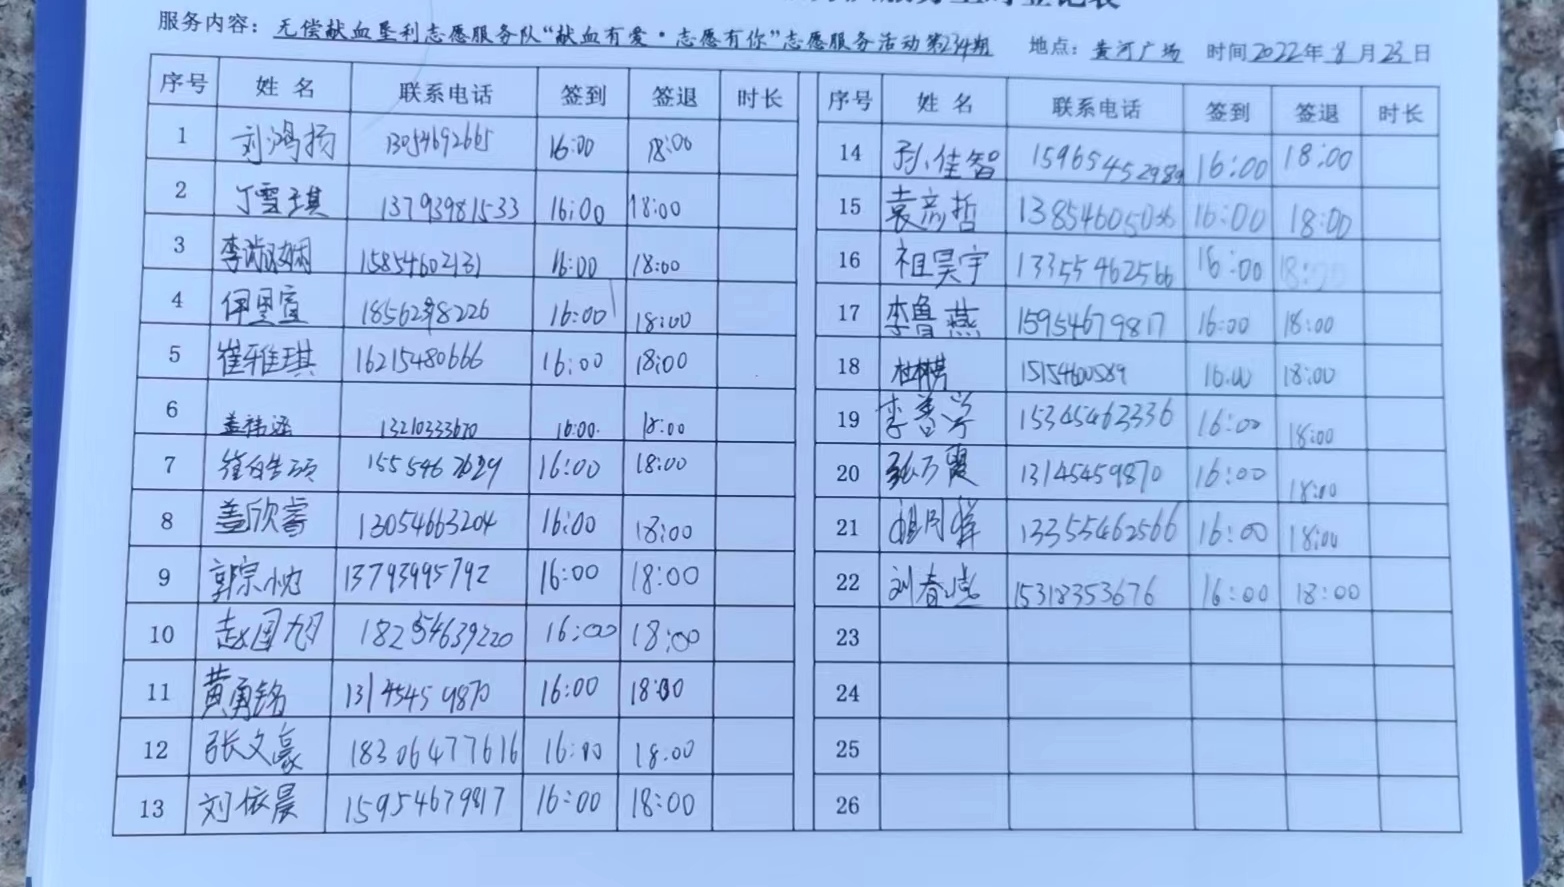 服务内容：无偿献血垦利志愿服务队“献血有爱·志愿有你”志愿服务活动第234期 地点：黄河广场 时间2022年8月23日
序号 姓名 联系电话 签到 签退 时长
1 刘鸿扬 13054692665 16:00 18:00
2 丁雪琪 13793981533 16:00 18:00
3 李淑娴 15854602131 16:00 18:00
4 16:00 18:00
5 崔雅琪 16215480666 16:00 18:00
6 盖祎涵 13210333670 16:00 18:00
7 16:00 18:00
8 盖欣睿 13054663204 16:00 18:00
9 13793995792 16:00 18:00
10 赵国旭 18254639220 16:00 18:00
11 黄勇铭 13145459870 16:00 18:00
12 张文豪 18306477616 16:00 18:00
13 刘依晨 15954679817 16:00 18:00
序号 姓名 联系电话 签到 签退 时长
14 孙佳智 15965452989 16:00 18:00
15 袁彦哲 13854605036 16:00 18:00
16 祖昊宇 13355462566 16:00 18:00
17 李鲁燕 15954679817 16:00 18:00
18 15154600589 16:00 18:00
19 李善学 15345463336 16:00 18:00
20 张万霞 13145459870 16:00 18:00
21 13355462566 16:00 18:00
22 刘春 15318353676 16:00 18:00
23
24
25
26